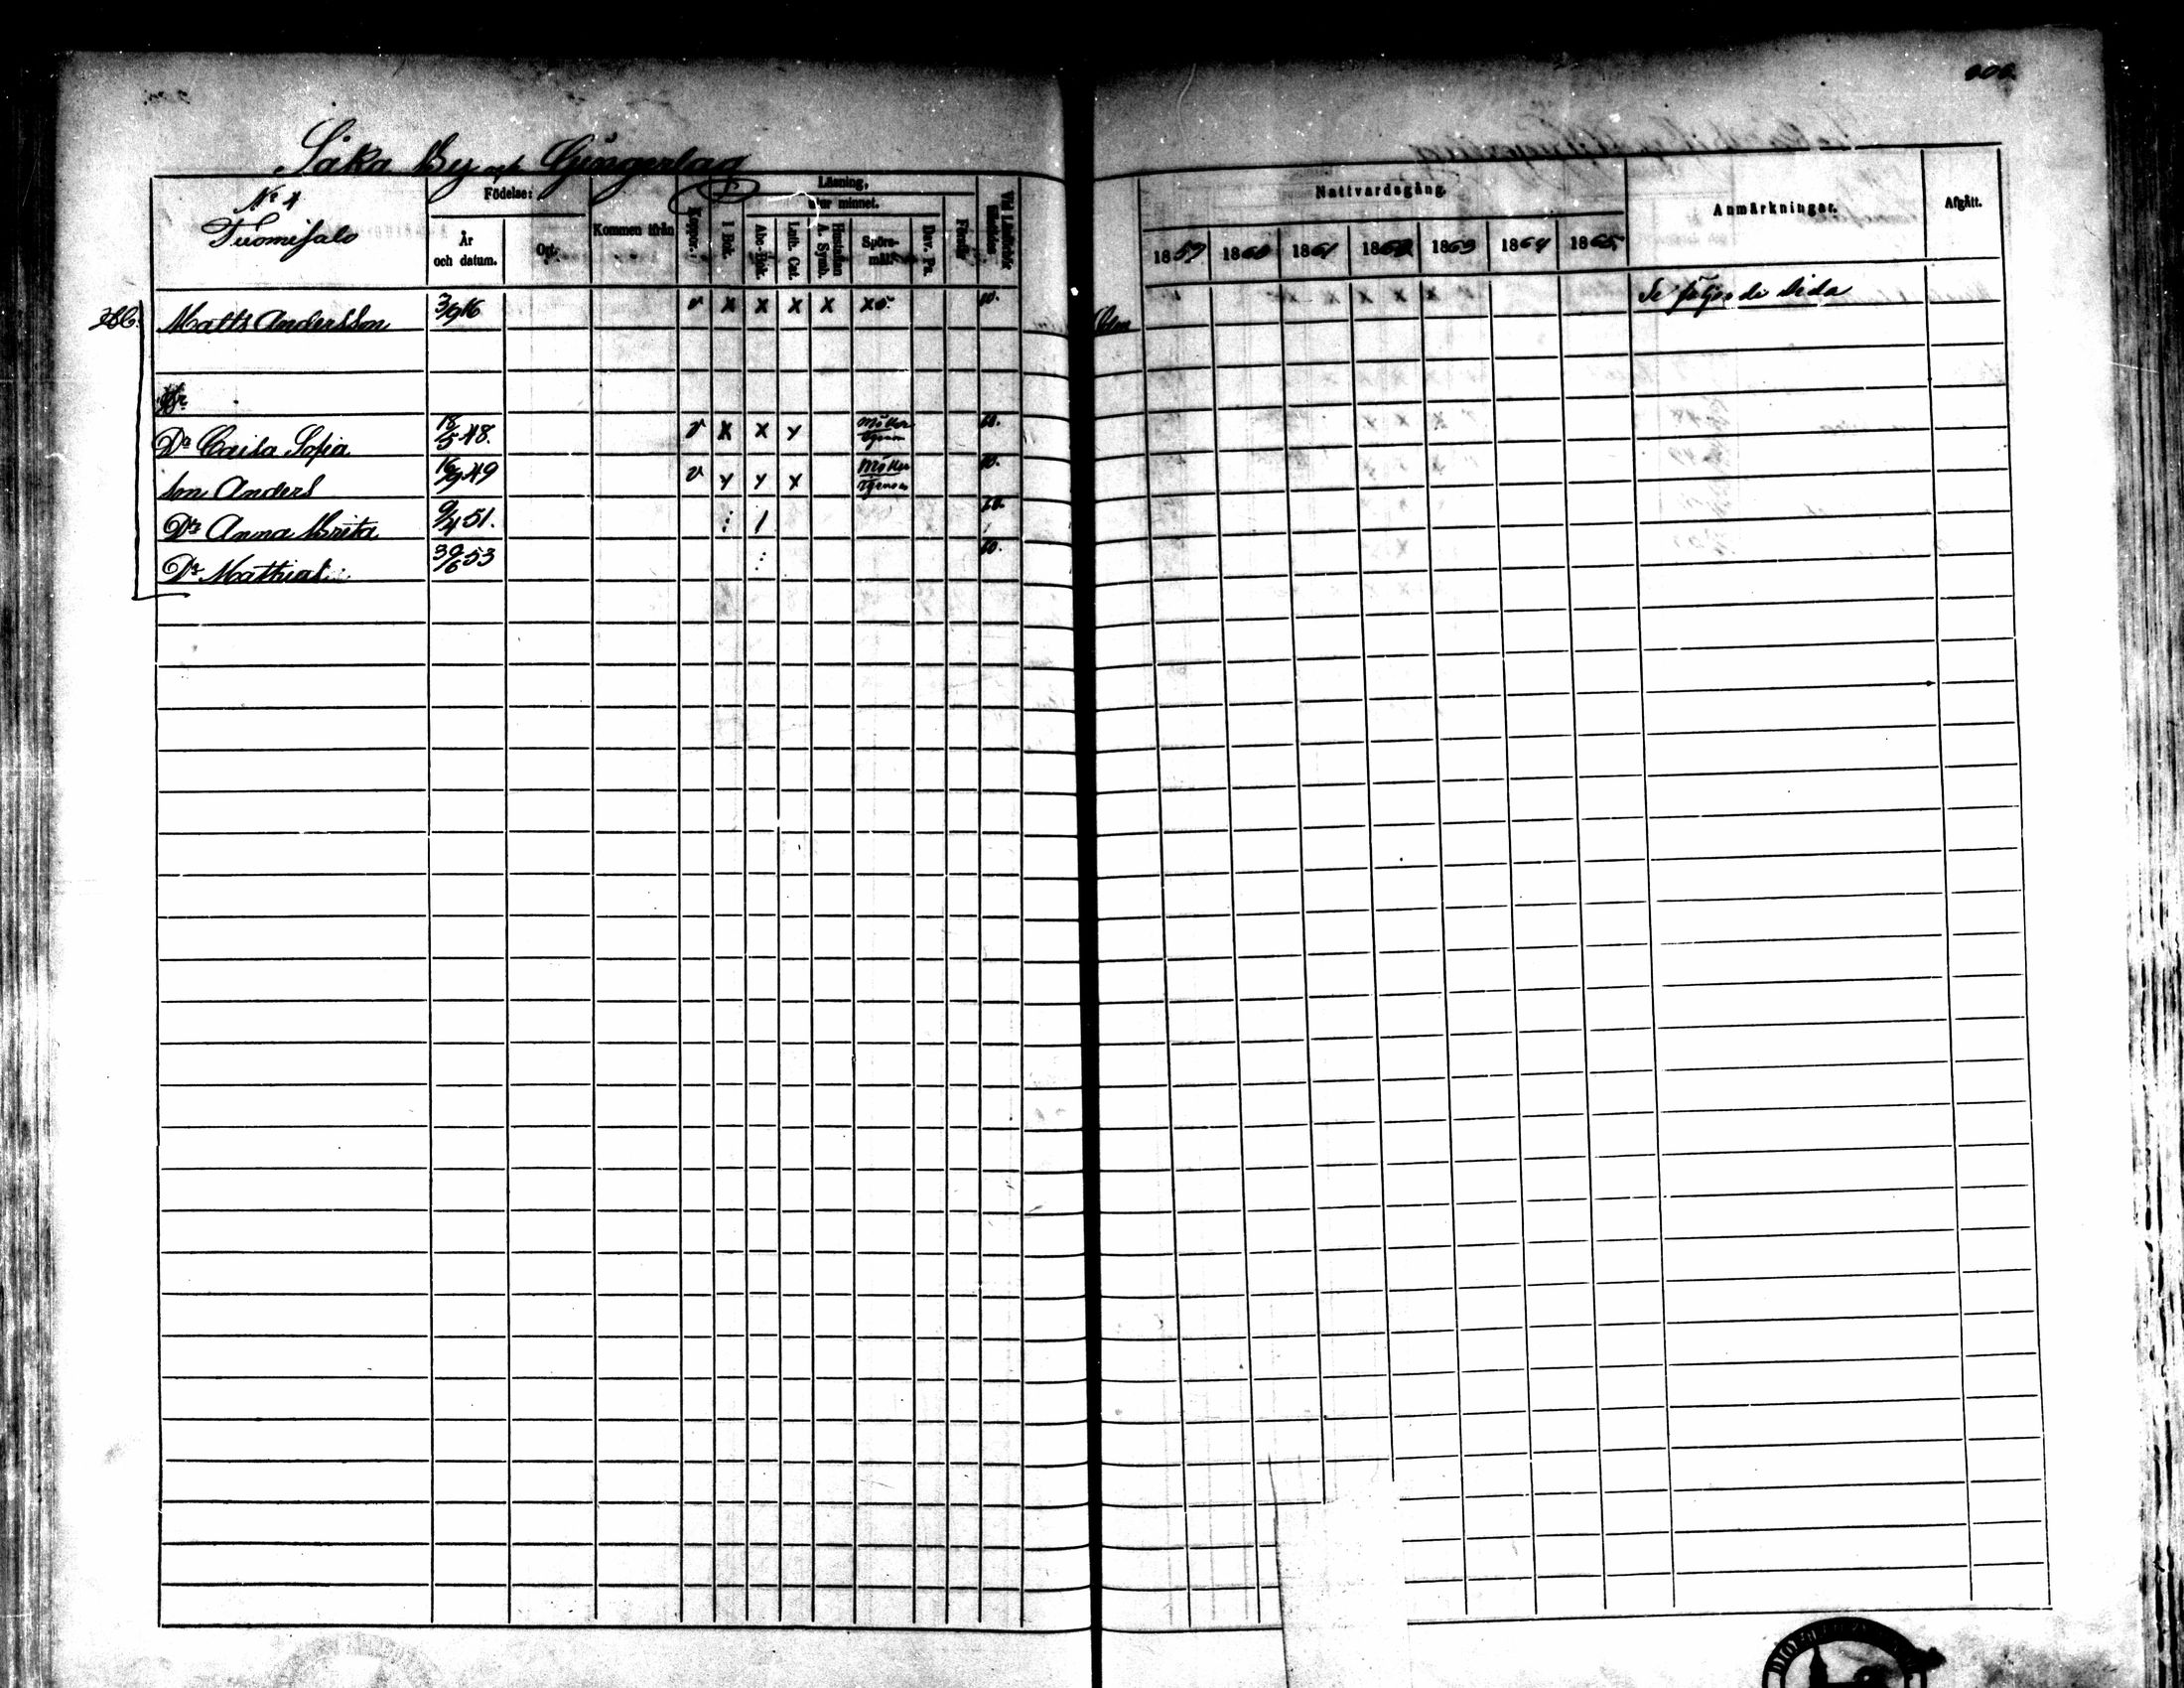 206.
Såka By och Gjüngerlag
Nº 4
Tuomisalo
Födelse:
År och datum.
Ort.
Kommen ifrån
Koppor.
Läsning,
I Bok.
utur minnet.
Abc-Bok.
Luth. Cat.
Hustaflan A. Symb.
Spörs-mål.
Dav. Ps.
Förstår
Nattvardsgång.
1859 1860 1861 1862 1863 1864 1865
Anmärkningar.
Afgått.
Matts Andersson 3/9 16 v x x x x x 5. 60. Se följande Sida
Dr Caisa Sofia 18/5 48. v x x y 60.
Son Anders 16/9 49 v y y x 60.
Dr Anna Brita 9/4 51. : / 60.
Dr Mathias 30/6 53 : 60.